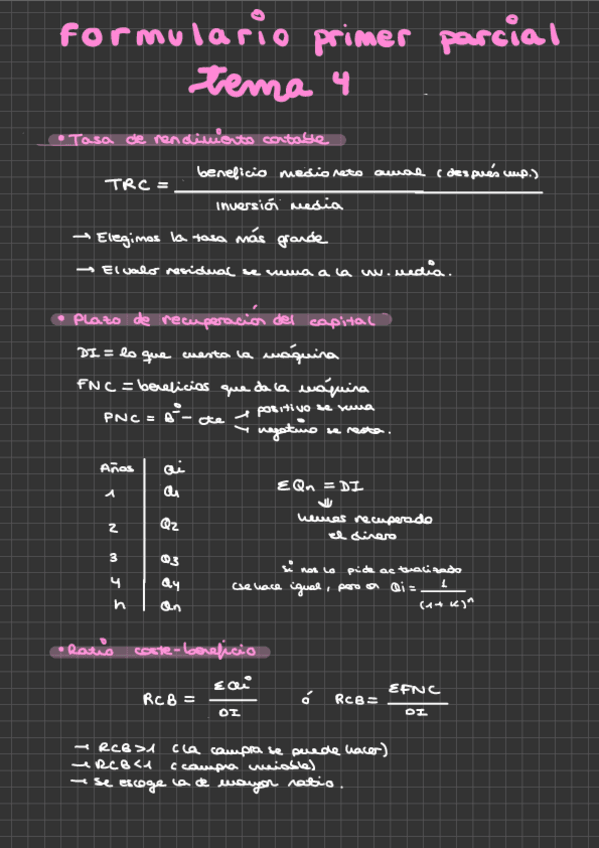 Formulario primer parcial
tema 4
• Tasa de rendimiento contable
TRC = beneficio medio neto anual (después imp.)
inversión media
→ Elegimos la tasa más grande
→ El valor residual se suma a la inv. media.
• Plazo de recuperación del capital
DI = lo que cuesta la máquina
FNC = beneficios que da la máquina
PNC = Bº - cte → positivo se suma
→ negativo se resta.
Años Qi
1 Q1
2 Q2
3 Q3
4 Q4
n Qn
ΣQn = DI
⇓
hemos recuperado
el dinero
si nos lo pide actualizado
(se hace igual, pero en Qi = 1
(1+K)ⁿ
• Ratio coste-beneficio
RCB = ΣQi
DI
ó RCB = ΣFNC
DI
→ RCB>1 (La compra se puede hacer)
→ RCB<1 (compra inviable)
→ Se escoge la de mayor ratio.